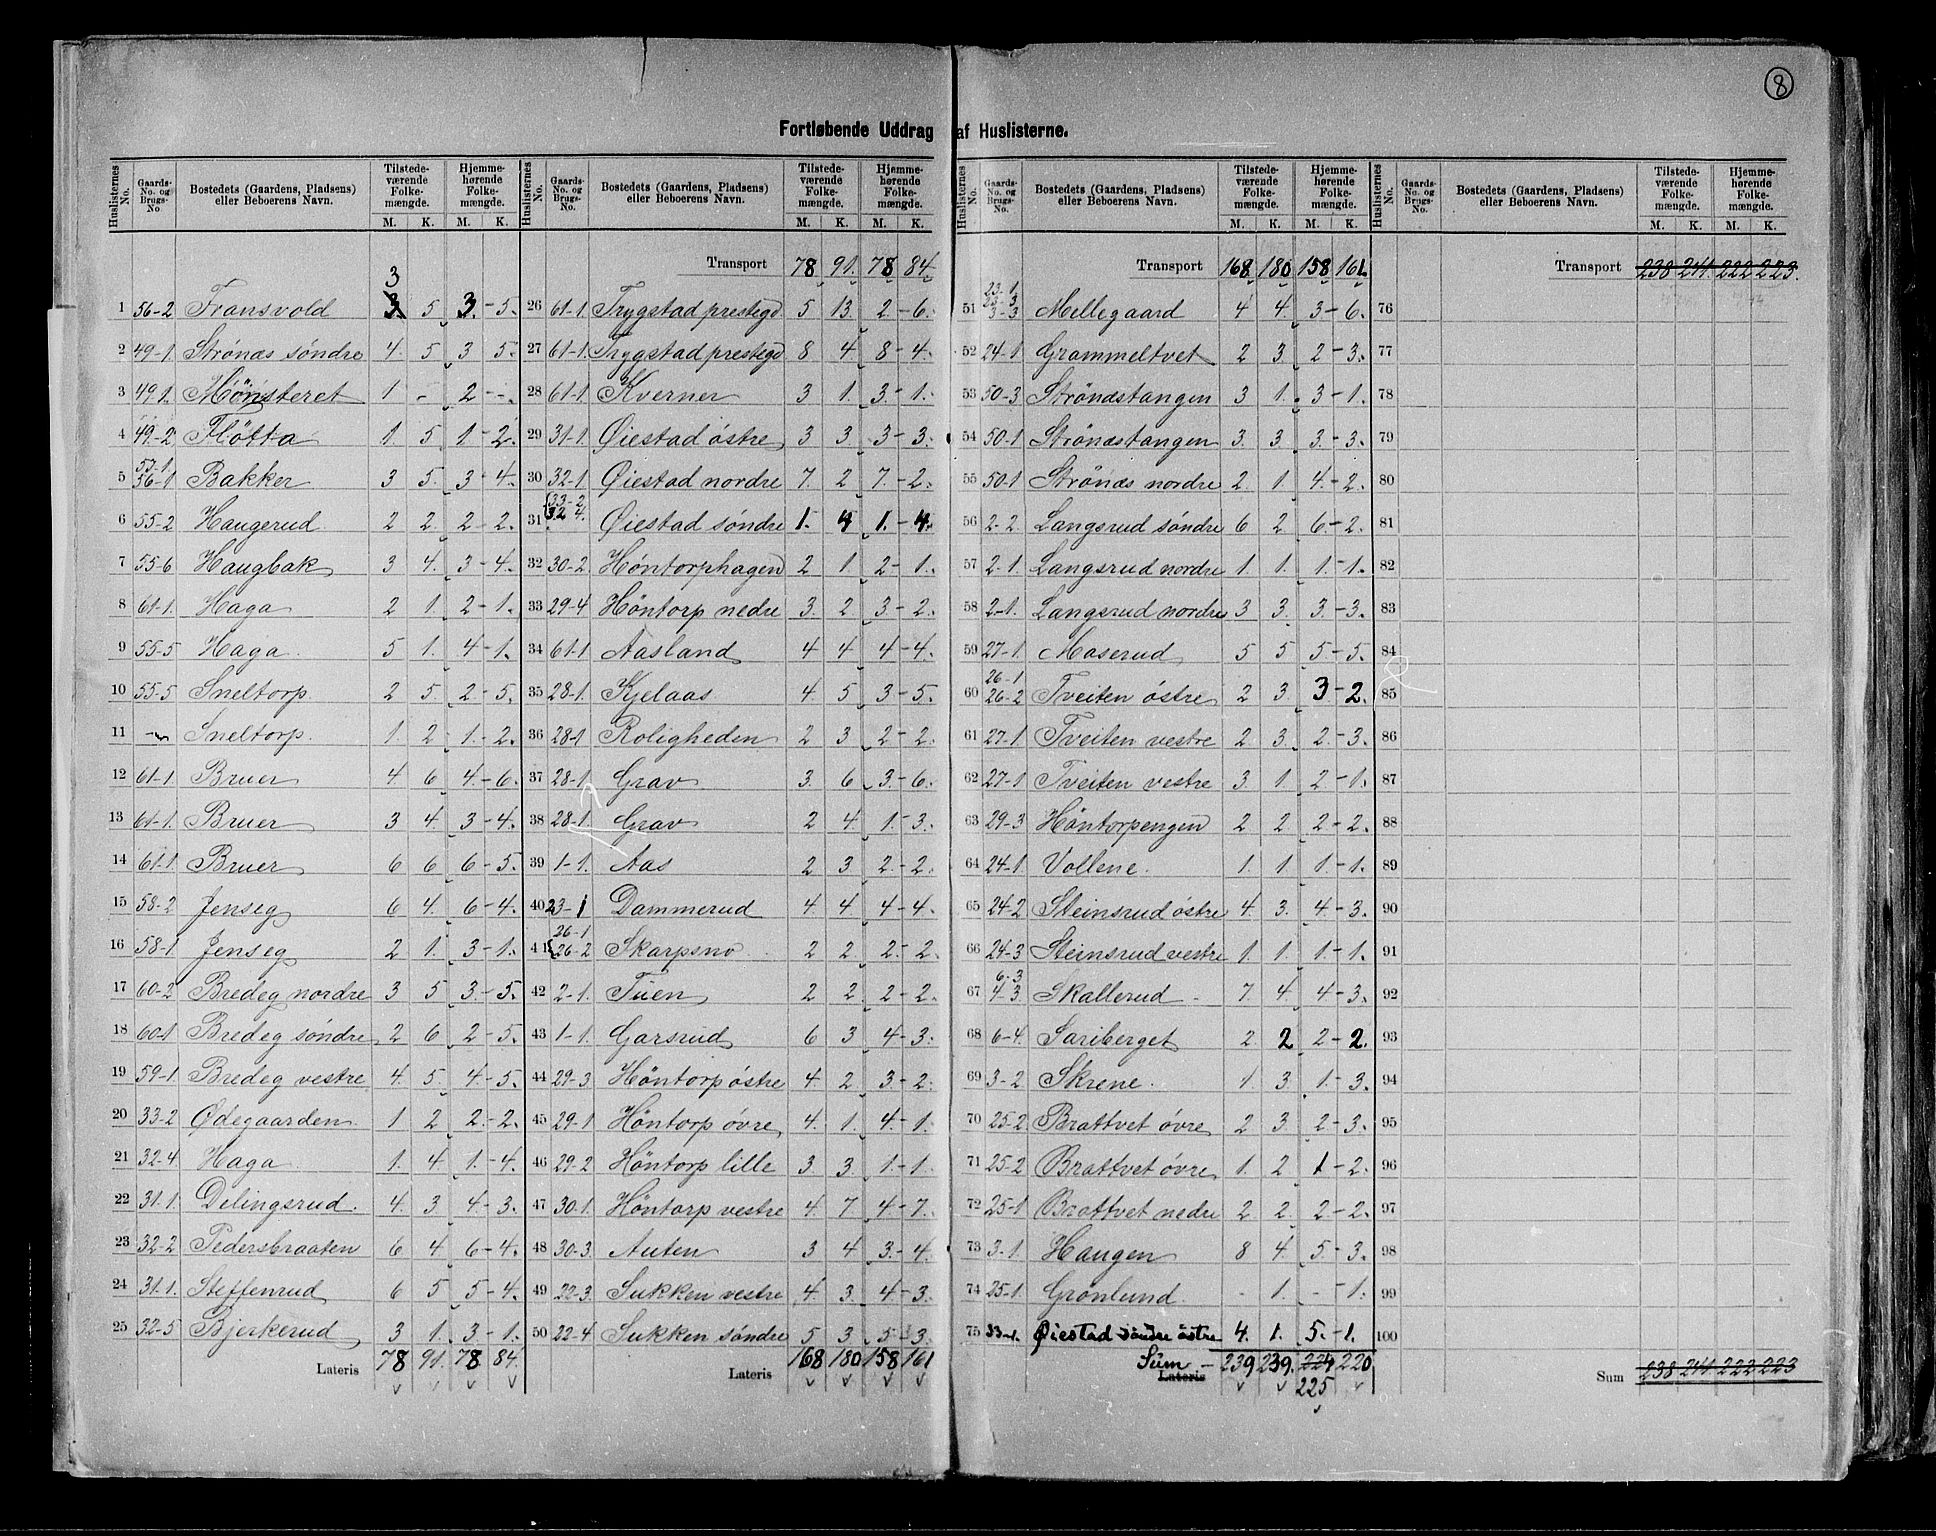 8
Fortløbende Uddrag af Huslisterne.
Huslisternes No. Gaards- No. og Brugs- No. Bostedets (Gaardens, Pladsens) eller Beboerens Navn. Tilstedeværende Folkemængde. M. K. Hjemmehørende Folkemængde. M. K.
3
1 56-2 Fransvold 3 5 3 - 5.
2 49-1. Strönæs söndre 4. 5 3 5.
3 49.1. Mönsteret 1 - 2 - -.
4 49.-2 Flötta 1. 5 1 - 2.
5 53-1. 56-1 Bakker 3 5. 3 - 4.
6 55-2 Haugerud 2 2. 2 - 2.
7 55-6 Haugbak 3 4. 3 - 4.
8 61-1. Haga 2 1. 2 - 1.
9 55-5 Haga. 5 1. 4 - 1.
10 55-5 Sneltorp. 2 5. 2 - 5.
11 -"- Sneltorp. 1. 2 1. - 2.
12 61-1 Bruer 4 6 4. - 6.
13 61-1. Bruer 3 4. 3 - 4.
14 61-1 Bruer 6 6 6 - 5.
15 58-2 Jenseg 6 4. 6 - 4.
16 58-1 Jenseg 2 1. 3 - 1.
17 60-2 Bredeg nordre 3 5 3. - 5.
18 60-1 Bredeg söndre 2 6 2 - 5.
19 59-1. Bredeg vestre 4. 5. 4 - 5.
20 33-2 Ødegaarden. 1 2 2. - 2.
21 32-4 Haga 1. 4 1. - 4.
22 31.1. Delingsrud. 4. 3 4. - 3.
23 32-2 Pedersbraaten 6 4 6 - 4.
24 31.1. Steffenrud 6 5 5 - 4.
25 32-5 Bjerkerud 3 1. 3 - 1.
Lateris 78 91. 78 84.
Huslisternes No. Gaards- No. og Brugs- No. Bostedets (Gaardens, Pladsens) eller Beboerens Navn. Tilstedeværende Folkemængde. M. K. Hjemmehørende Folkemængde. M. K.
Transport 78 91. 78 84.
26 61-1. Trygstad prestegd 5 13. 2 - 6.
27 61-1. Trygstad prestegd 8 4 8 - 4.
28 61-1. Kverner 3 1. 3. - 1.
29 31-1. Øiestad östre 3 3. 3 - 3.
30 32-1. Øiestad nordre 7. 2 7. - 2.
31 33-2. 32 4. Øiestad söndre 1. 4 1. - 4.
32 30-2. Höntorphagen 2 1. 2 - 1.
33 29-4 Höntorp nedre 3. 2 3 - 2.
34 61-1 Aasland 4 4 4 - 4.
35 28-1. Kjelaas 4. 5 3 - 5.
36 28-1 Roligheden 2 3 2 - 2.
37 28-1. Grav 3. 6 3. - 6.
38 28-1. Grav 2 4. 1. - 3.
39 1-1. Aas 2 3 2. - 2.
40 23-1 Dammerud 4 4 4 - 4.
41 26-1 26-2 Skarpsno 2 2 2. - 2.
42 2-1. Tuen 2 2. 2 - 2.
43 1-1. Garsrud 6 3 4 - 3.
44 29-3 Höntorp östre 4. 2 3 - 2.
45 29-1 Höntorp övre 4. 1. 4. - 1.
46 29-2 Höntorp lille 3. 3. 1. - 1.
47 30-1. Höntorp vestre 4. 7 4 - 7.
48 30-3. Auten 3 4 3. - 4.
49 22-3. Sukken vestre 4. 3. 4 - 3.
50 22-4 Sukken söndre 5 3 5 - 3.
Lateris 168 180 158 161
Huslisternes No. Gaards- No. og Brugs- No. Bostedets (Gaardens, Pladsens) eller Beboerens Navn. Tilstedeværende Folkemængde. M. K. Hjemmehørende Folkemængde. M. K.
Transport 168 180 158 161.
51 23-1. 23-3 3-3 Mellegaard 4 4. 3 - 6.
52 24-1 Grammeltvet 2 3 2 - 3.
53 50-3 Strönæstangen 3 1. 3 - 1.
54 50-1 Strönæstangen 3. 3 3. - 3.
55 50-1 Strönæs nordre 2. 1. 4. - 2.
56 2-2. Langsrud söndre 6 2 6 - 2.
57 2-1. Langsrud nordre 1. 1. 1. - 1.
58 2-1. Langsrud nordre 3 3. 3. - 3.
59 27-1. Moserud 5 5 5 - 5.
60 26-1 26-2 Tveiten östre 2 3. 3 - 2.
61 27-1. Tveiten vestre 2 3. 2. - 3.
62 27-1 Tveiten vestre 3. 1 2 - 1.
63 29-3 Höntorpengen 2 2. 2 - 2.
64 24-1. Vollene. 1. 1. 1. - 1.
65 24-2 Steinsrud östre 4. 3. 4. - 3.
66 24-3 Steinsrud vestre 1. 1. 1. - 1.
67 6-3 4-3. Skallerud 7. 4 4 - 3.
68 6-4. Sariberget 2. 2 2 - 2.
69 3-2 Skrene. 1. 3 1. - 3.
70 25-2 Brattvet övre 2 3. 2 - 3.
71 25-2 Brattvet övre 1. 2 1 - 2.
72 25-1 Brattvet nedre 2 2. 2 - 2.
73 3-1. Haugen 8 4. 5. - 3.
74 25-1. Grönlund. - 1. - - 1.
75 33-1. Øiestad söndre östre 4. 1. 5. - 1.
Sum Lateris 239 239. 224 220
225
Huslisternes No. Gaards- No. og Brugs- No. Bostedets (Gaardens, Pladsens) eller Beboerens Navn. Tilstedeværende Folkemængde. M. K. Hjemmehørende Folkemængde. M. K.
Transport 238 241. 222 223.
76
77
78
79
80
81
82
83
84
85
86
87
88
89
90
91
92
93
94
95
96
97
98
99
100
Sum 238 241. 222 223